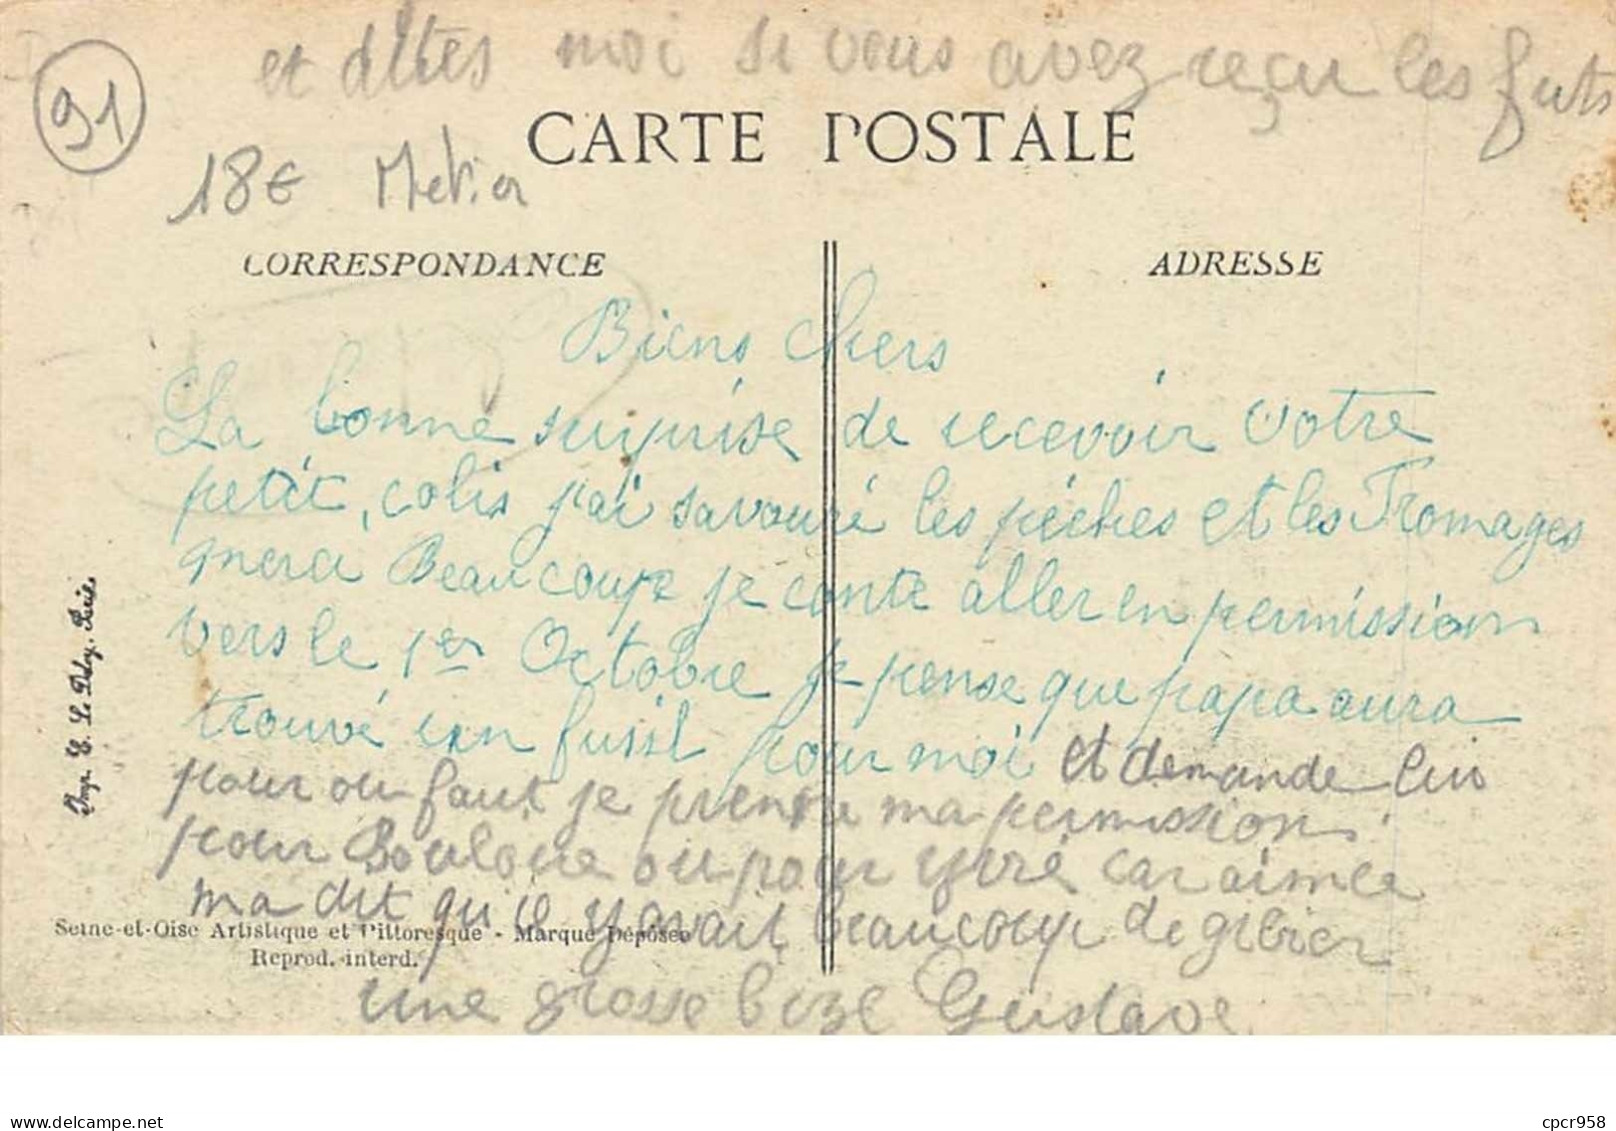 et dîtes moi si vous avez reçu les futs
91
CARTE POSTALE
18€ Métier
CORRESPONDANCE
ADRESSE
Biens chers
La bonne surprise de recevoir votre
petit colis j'ai savouré les pêches et les Fromages
merci Beaucoupe je conte aller en permission
vers le 1er Octobre je pense que papa aura
trouvé un fusil pour moi et demande lui
pour ou faut je prendre ma permission
pour ou pour Yvré car aimée
ma dit qu'il y avait beaucoup de gibier
Seine-et-Oise Artistique et Pittoresque - Marque Déposée
Reprod. interd.
une grosse bize Gustave
Imp. E. Le Deley, Paris
cpcr958